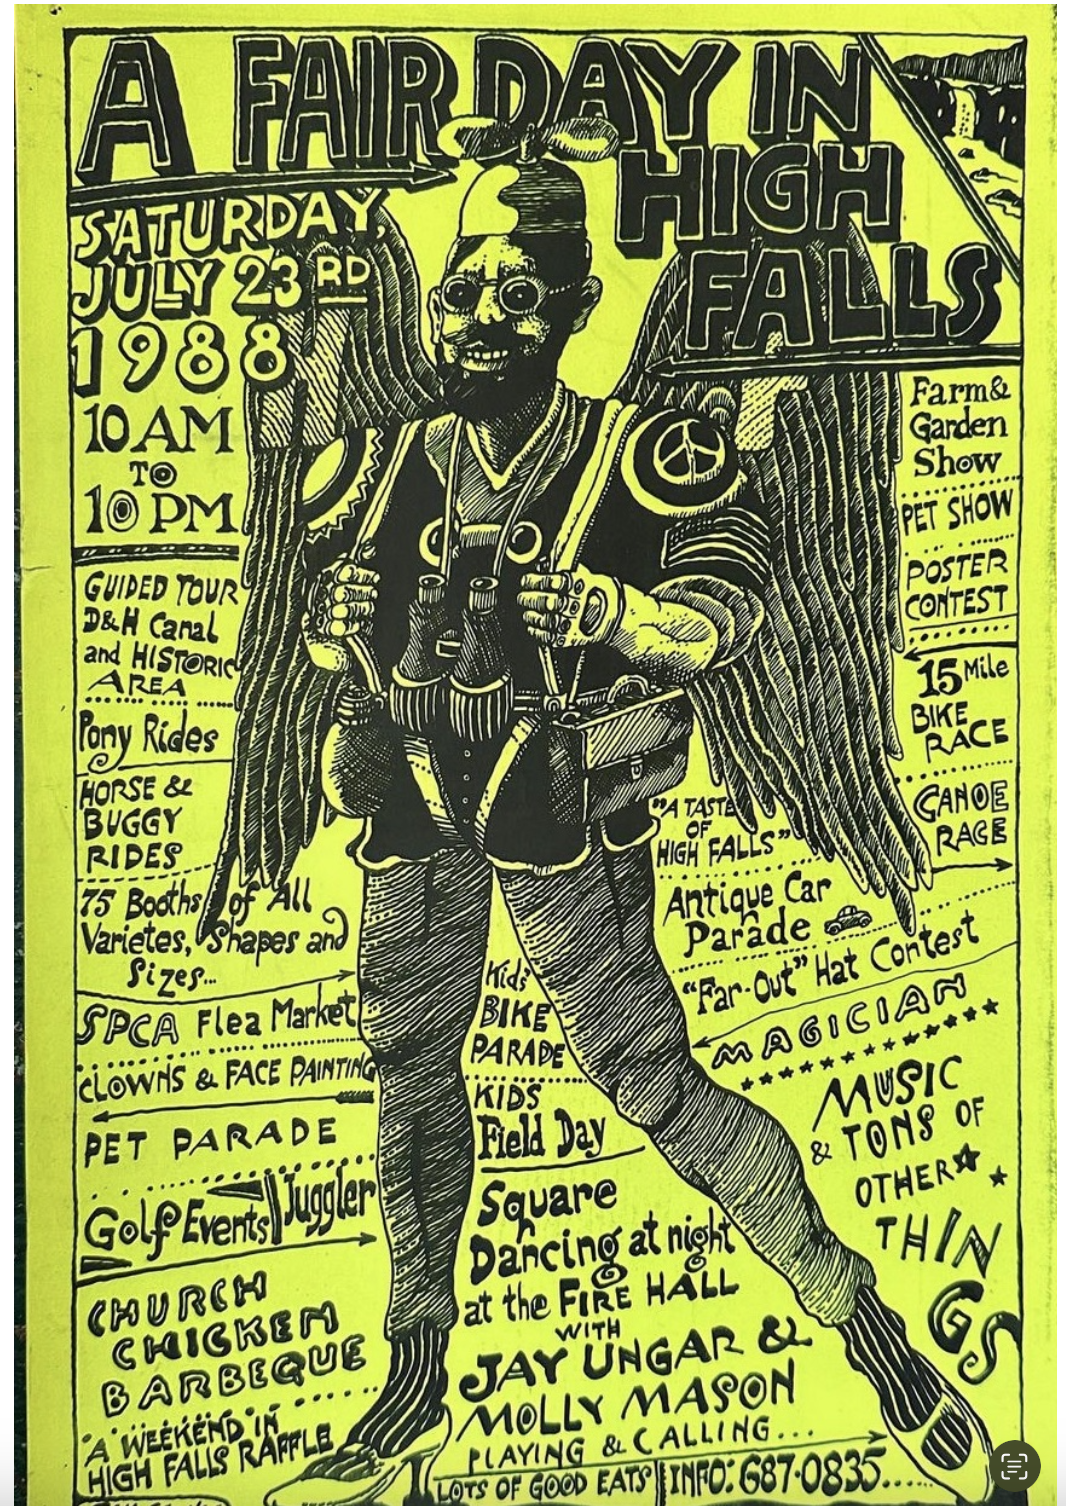 A FAIR DAY IN
HIGH
FALLS
SATURDAY,
JULY 23RD
1988
10 AM
TO
10 PM
GUIDED TOUR
D&H Canal
and HISTORIC
AREA
Pony Rides
HORSE &
BUGGY
RIDES
75 Booths of All
Varietes, Shapes and
Sizes...
SPCA Flea Market
CLOWNS & FACE PAINTING
PET PARADE
Golf Events Juggler
CHURCH
CHICKEN
BARBEQUE
"A WEEKEND IN
HIGH FALLS RAFFLE
Farm&
Garden
Show
PET SHOW
POSTER
CONTEST
15 Mile
BIKE
RACE
CANOE
RACE
"A TASTE
OF
HIGH FALLS"
Antique Car
Parade
"Far-Out" Hat Contest
MAGICIAN
MUSIC
& TONS OF
OTHER
THIN
GS
Kid's
BIKE
PARADE
KIDS
Field Day
Square
Dancing at night
at the FIRE HALL
WITH
JAY UNGAR &
MOLLY MASON
PLAYING & CALLING...
LOTS OF GOOD EATS INFO: 687-0835.....